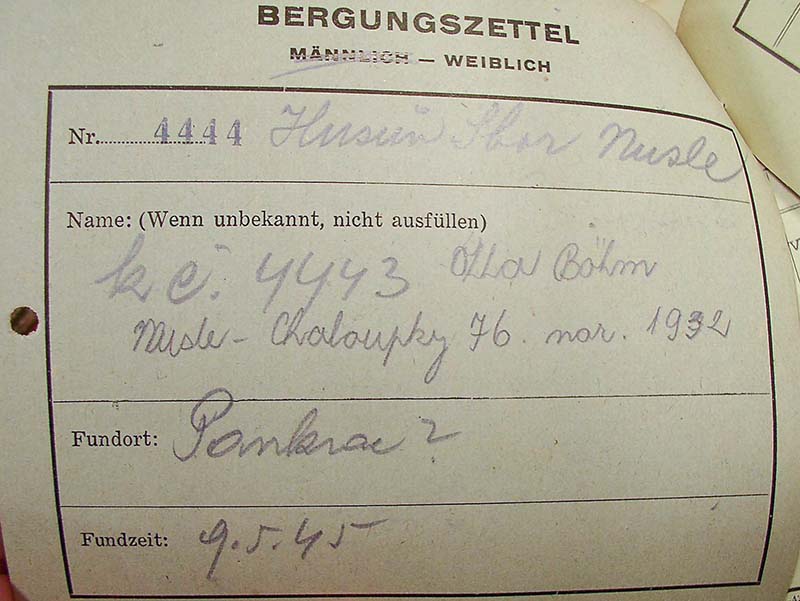 BERGUNGSZETTEL
MÄNNLICH — WEIBLICH
Nr. 4444 Husův Sbor Nusle
Name: (Wenn unbekannt, nicht ausfüllen)
k č. 4443 Otta Böhm
Nusle - Chaloupky 76. nar. 1932
Fundort: Pankrac ?
Fundzeit: 9.5.45